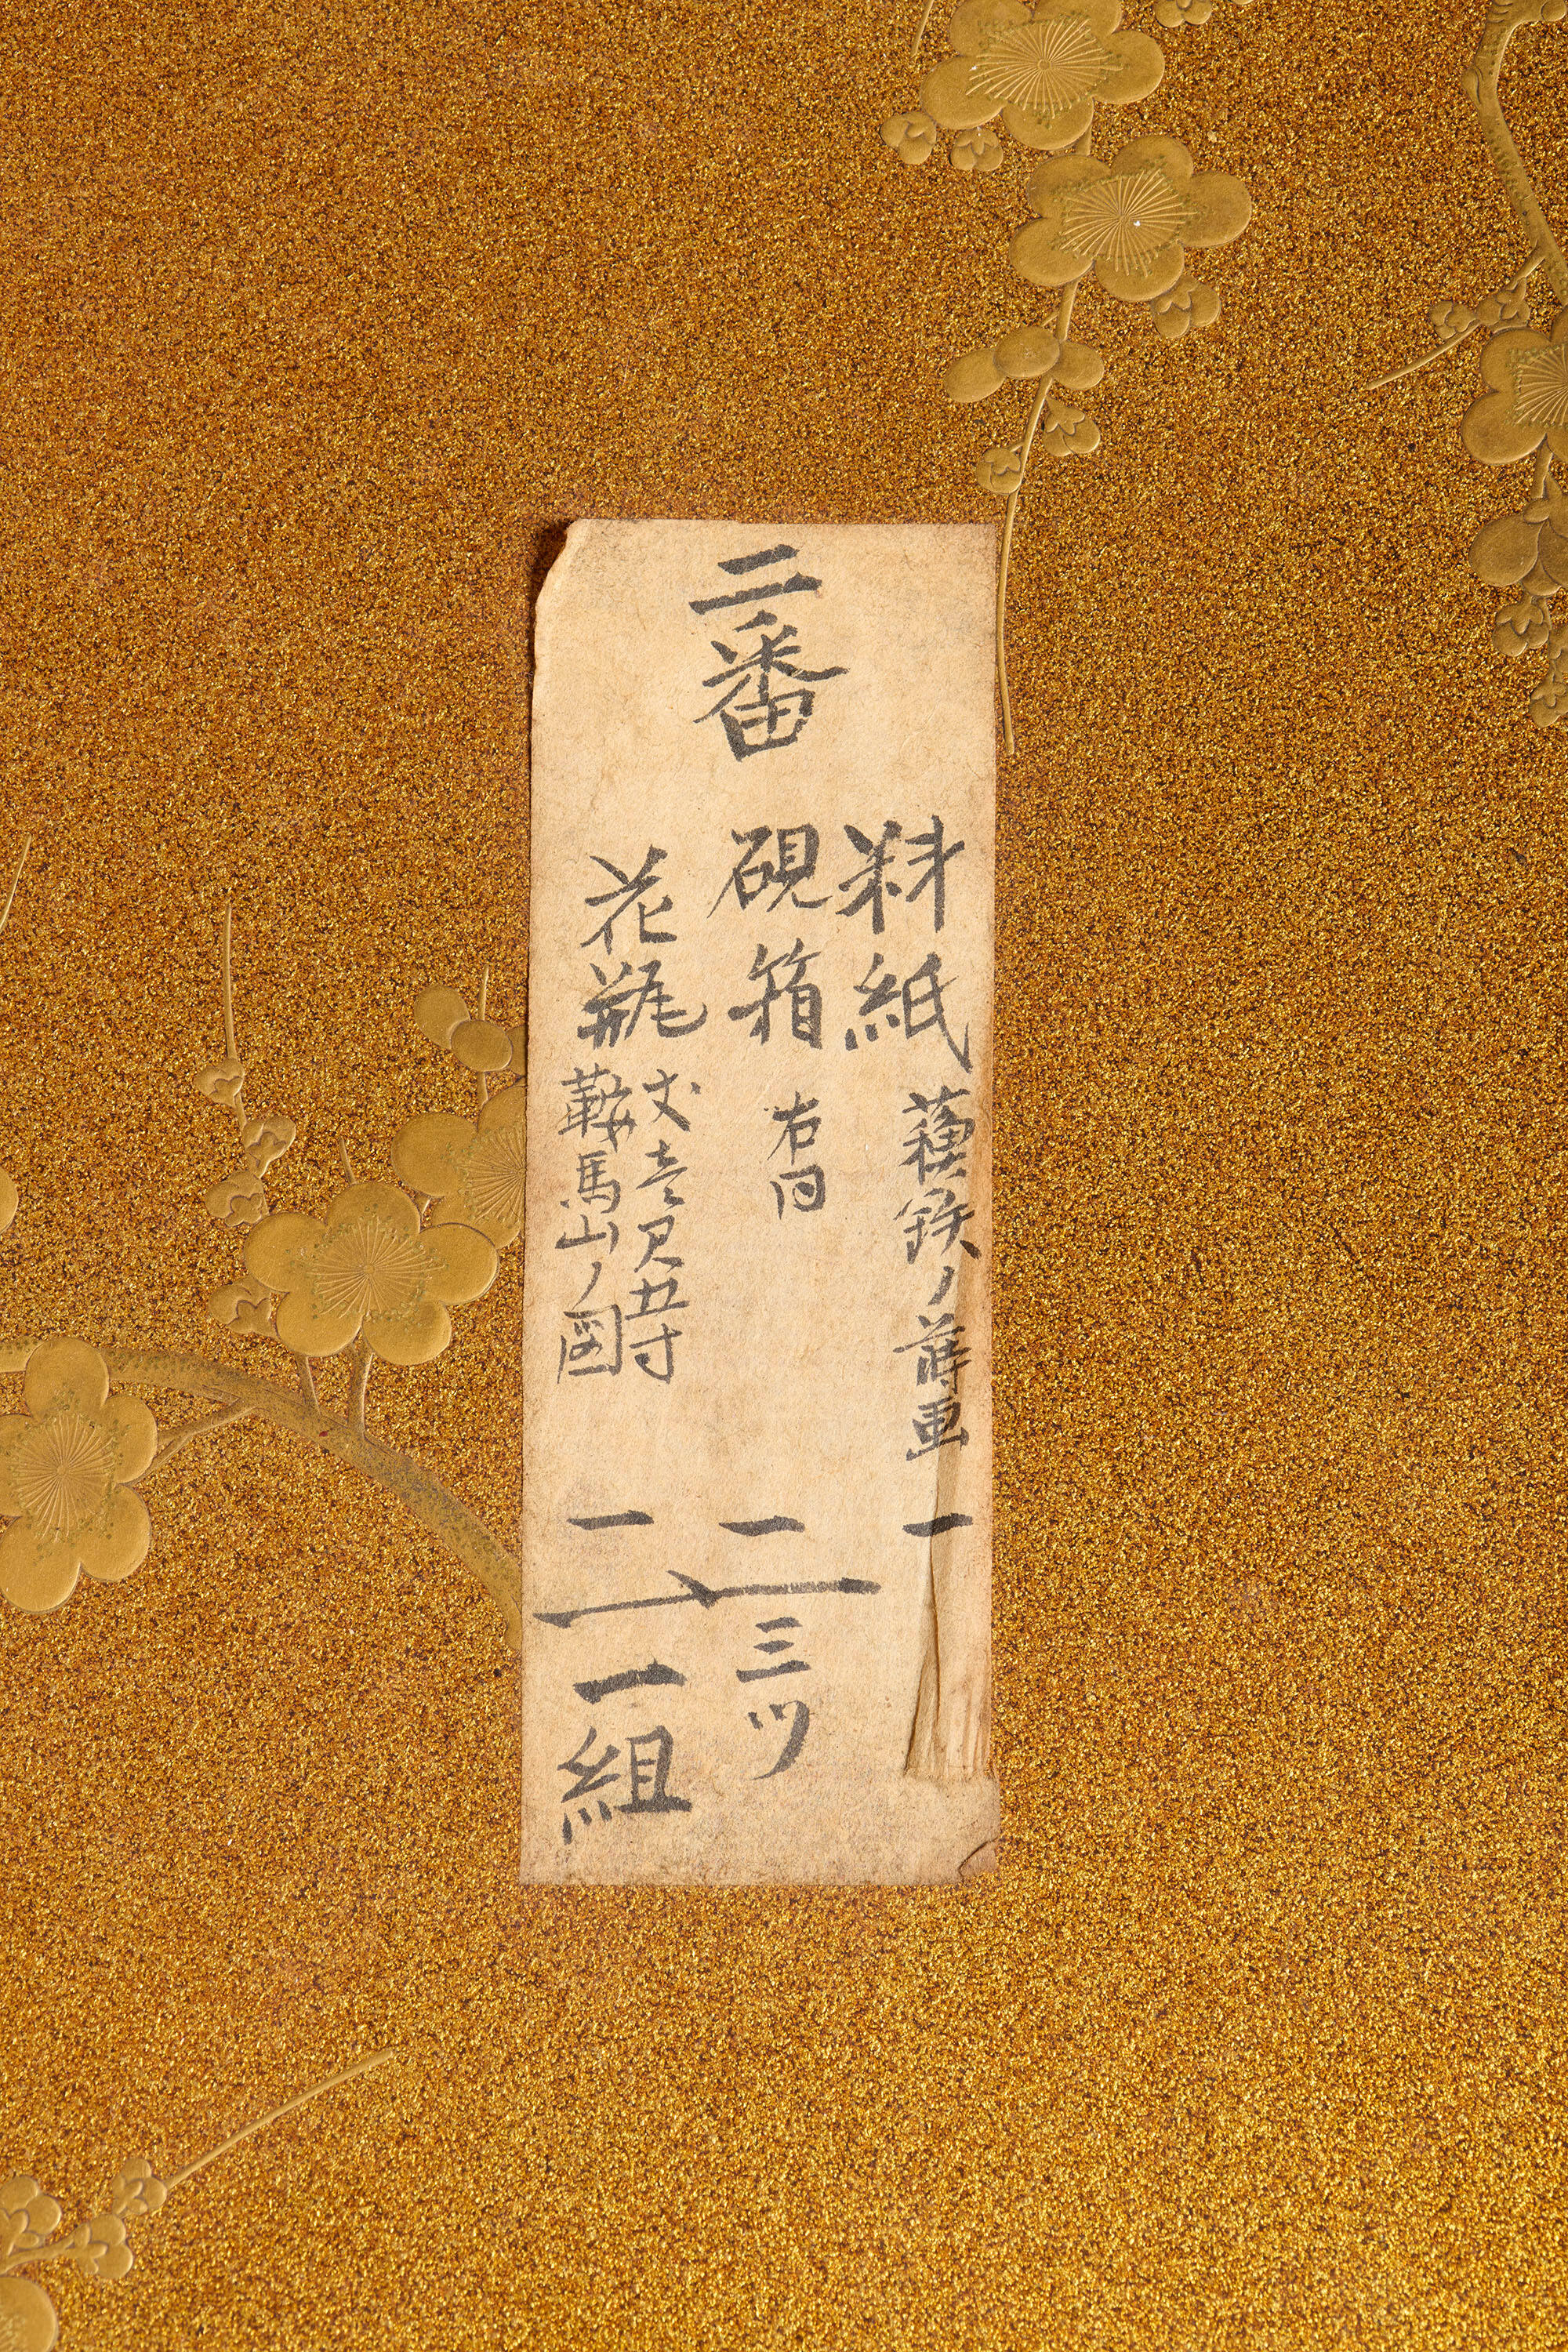 二番
料紙 蘓鉄ノ蒔画 一
硯箱 右同 一
花瓶 丈壱尺五寸
鞍馬山ノ圖 一
三ツ
一組